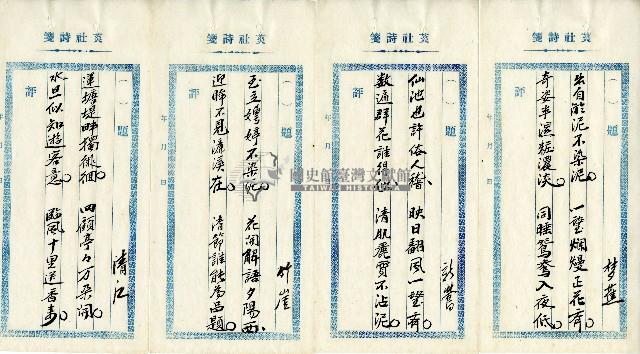 箋詩社芸
題
評
年 月 日
出自淤泥不染泥 一望爛熳正花齊
奇姿半濕綻濃淡 同睡鴛鴦入夜低
夢蓮
箋詩社芸
題
評
年 月 日
仙池也許俗人稽 映日翻風一望齊
數遍群花誰得似 清肌麗質不沾泥
箋詩社芸
題
評
年 月 日
玉立娉婷不染泥 花開解語夕陽西
迎眸不見濂溪在 清節誰能為品題
竹崖
箋詩社芸
題
評
年 月 日
蓮塘堤畔獨徘徊 四顧亭々万朶開
水旦似知遊客意 臨風十里送香來
清江
國史館臺灣文獻館
TAIWAN HISTORICA